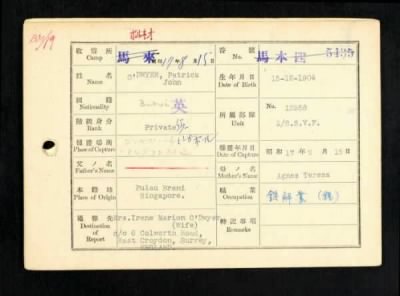 收容所
Camp
馬來
番號
No.
姓名
Name
O'DWYER, Patrick
John
生年月日
Date of Birth
15-12-1904
國籍
Nationality
英
所屬部隊
Unit
2/S.S.V.F.
階級身分
Rank
Private
捕獲場所
Place of Capture
捕獲年月日
Date of Capture
昭和 17 年 月 15 日
父ノ名
Father's Name
母ノ名
Mother's Name
Agnes Teresa
本籍地
Place of Origin
Pulau Brani
Singapore.
職業
Occupation
通報先
Destination of Report
Mrs. Irene Marion O'Dwyer
(Wife)
c/o 6 Colworth Road,
East Croydon, Surrey,
ENGLAND
特記事項
Remarks